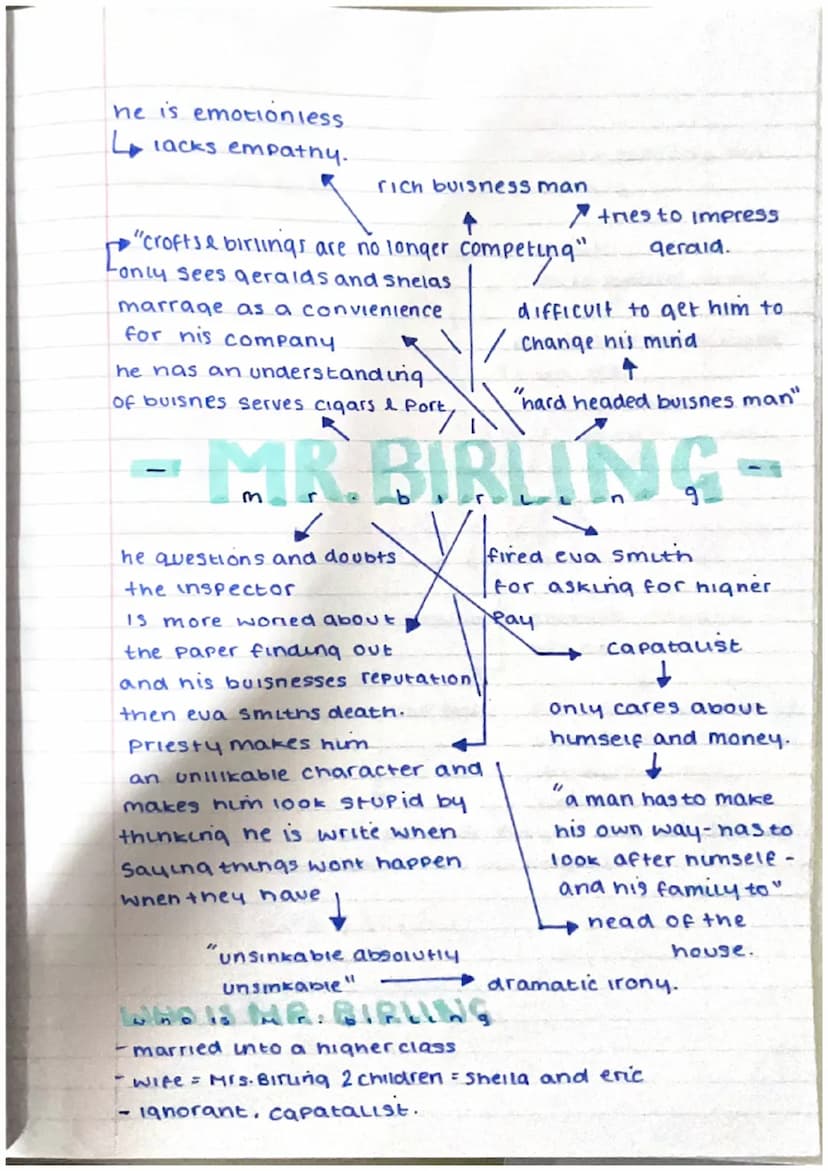 he is emotionless
↳ lacks empathy.
rich buisness man
tries to impress
gerald.
"crofts & birlings are no longer competing"
only sees geralds and shelas
marrage as a convienience
for his company
he has an understanding
of buisnes serves cigars & Port,
difficult to get him to
change his mind
"hard headed buisnes man"
- MR. BIRLING -
m r. b i r l i n g
he questions and doubts
the inspector
is more woried about
the paper finding out
and his buisnesses reputation
then eva smiths death.
Priesty makes him
an unlikable character and
makes him look stupid by
thinking he is write when
saying things wont happen
when they have
"unsinkable absolutly
unsinkable"
dramatic irony.
fired eva smith
for asking for higher
pay
capatalist
only cares about
humself and money.
"a man has to make
his own way-has to
look after himselfe -
and his family to"
head of the
house.
WHO IS MR. BIRLING
who is Mr. Birling
- married into a higher class
- wife = Mrs. Birling 2 children = sheila and eric
- ignorant. capatalist.